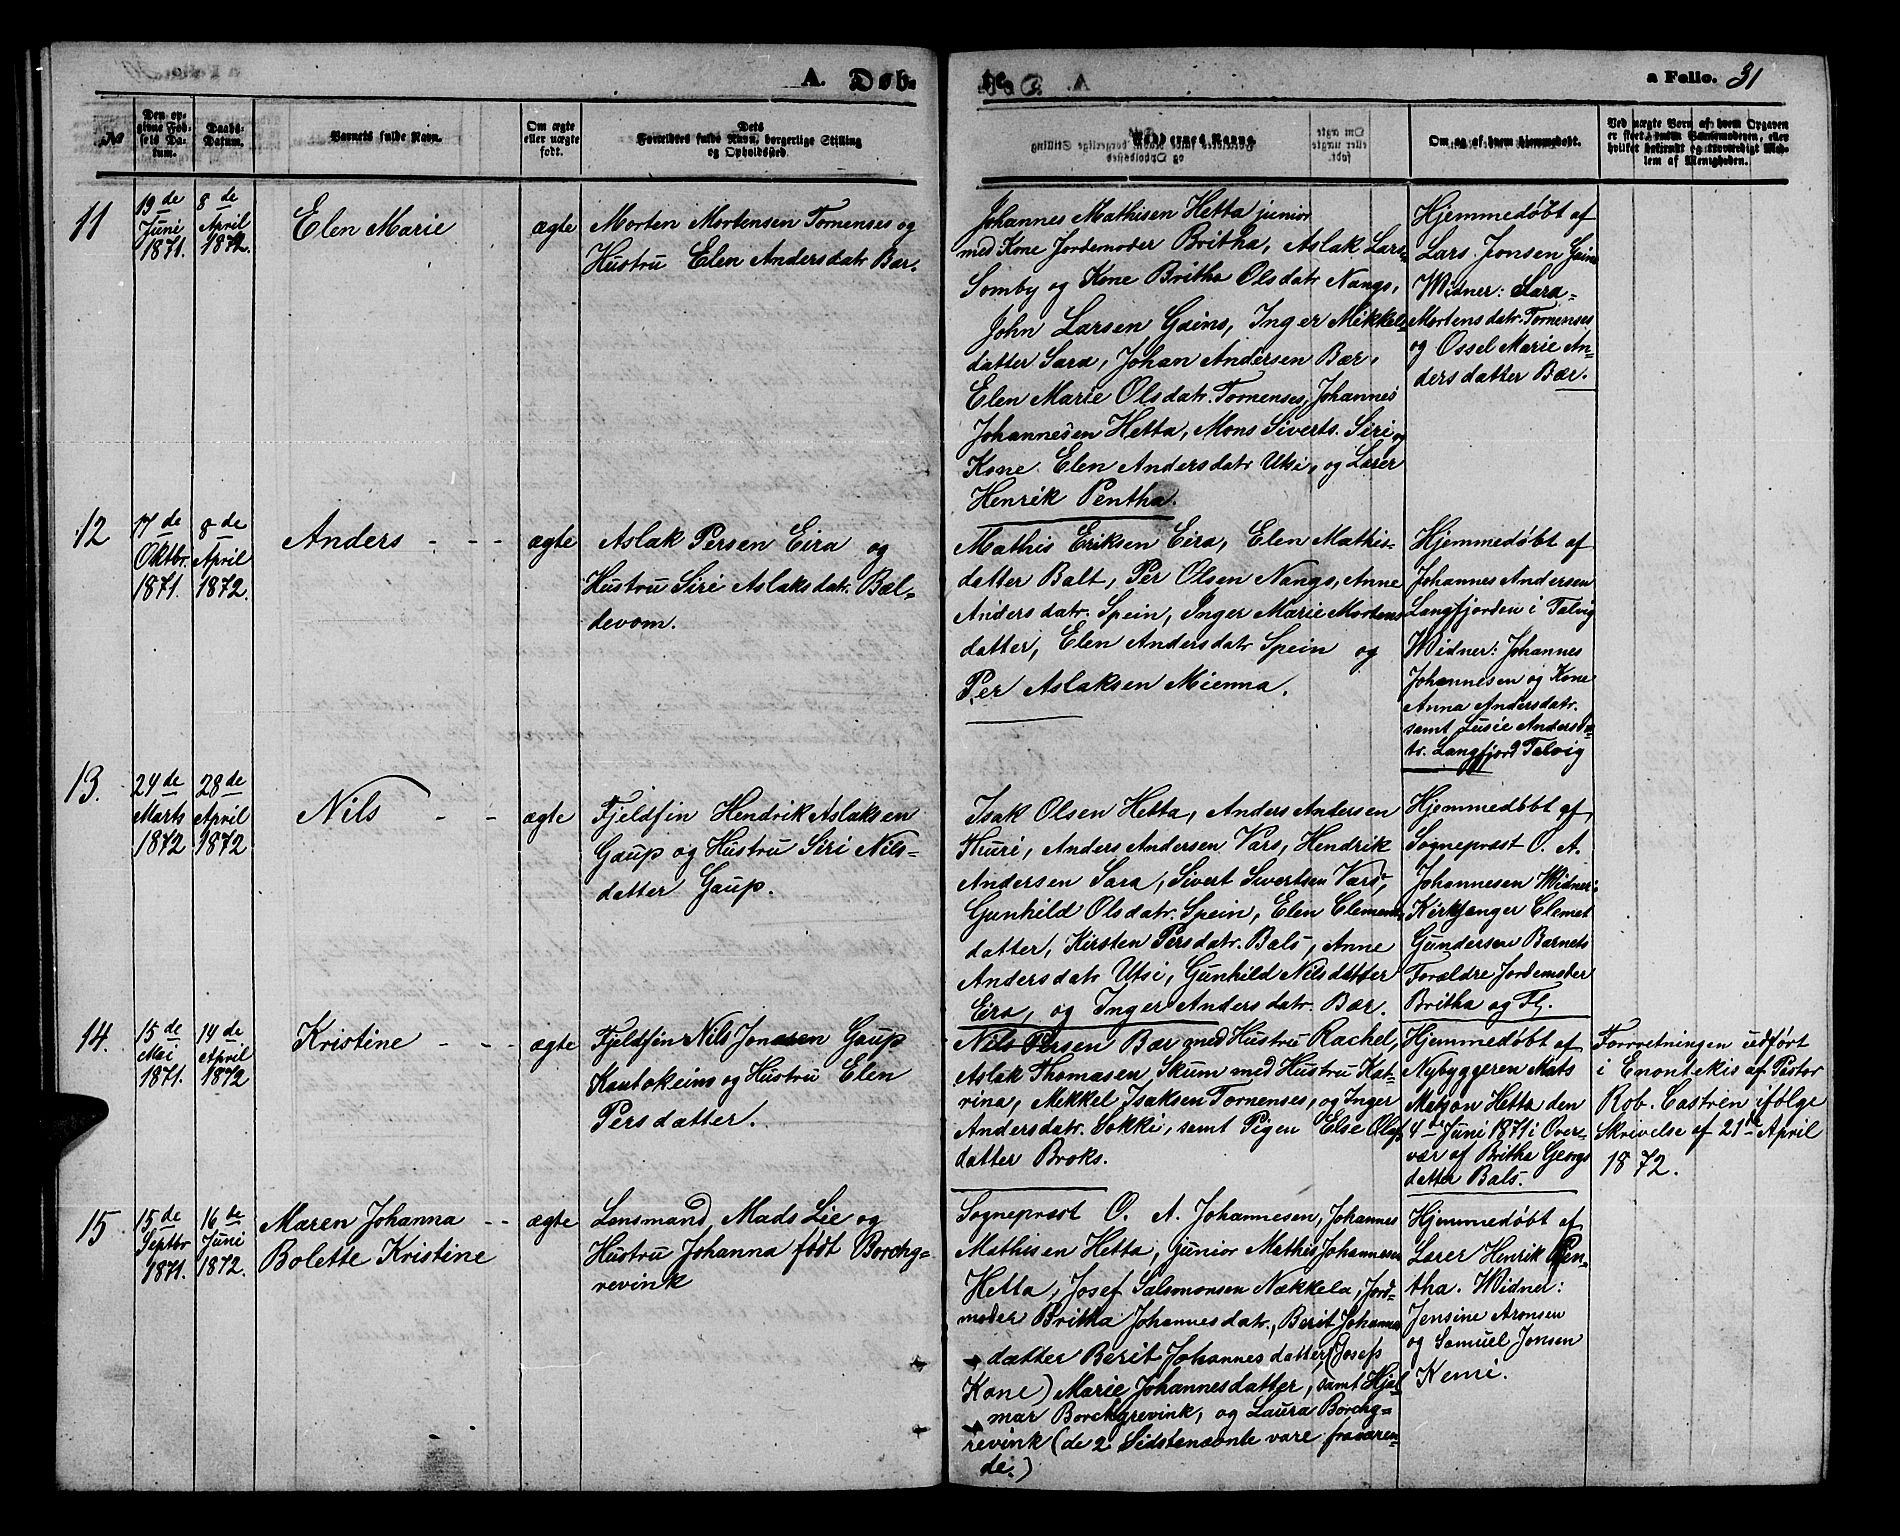 A. Døb-
te.
a Folio. 31
№
Den op-
givne Fød-
sels Da-
tum.
Daabs-
Datum.
Barnets fulde Navn.
Om ægte
eller uægte
født.
Dets
Forældres fulde Navn, borgerlige Stilling
og Opholdssted.
Faddernes Navne.
Om og af hvem hjemmedøbt.
Ved uægte Børn af hvem Opgaven
er skeet, enten Barnemoderen, eller
hvilket bekjendt og troværdigt Med-
lem af Menigheden.
11
19de
Juni
1871.
8de
April
1872.
Elen Marie
ægte
Morten Mortensen Tornenses og
Hustru Elen Andersdatr Bær.
Johannes Mathisen Hetta junior
med Kone Jordemoder Britha, Aslak Lars.
Somby og Kone Britha Olsdatr Nangs,
John Larsen Gains, Inger Mikkels-
datter Sara, Johan Andersen Bær,
Elen Marie Olsdatr. Tornenses, Johannes
Johannesen Hetta, Mons Siverts. Siri og
Kone Elen Andersdatr Utsi, og Lærer
Henrik Pentha.
Hjemmedøbt af
Lars Jonsen Gains
Widner: Sara
Mortensdatr. Tornenses
og Ossel Marie An-
dersdatter Bær.
12
17de
Oktbr.
1871.
8de
April
1872.
Anders
ægte
Aslak Persen Eira og
Hustru Siri Aslaksdatr. Bæl-
devom.
Mathis Eriksen Eira, Elen Mathis-
datter Balt, Per Olsen Nangs, Anne
Andersdatr. Spein, Inger Marie Mortens
datter, Elen Andersdatr Spein og
Per Aslaksen Mienna.
Hjemmedøbt af
Johannes Andersen
Langfjorden i Talvig
Widner: Johannes
Johannesen og Kone
Anna Andersdatr.
samt Lusie Andersda-
tr. Langfjord Talvig
13.
24de
Marts
1872
28de
April
1872
Nils
ægte
Fjeldfin Hendrik Aslaksen
Gaup og Hustru Siri Nils-
datter Gaup.
Isak Olsen Hetta, Anders Andersen
Thuri, Anders Andersen Vars, Hendrik
Andersen Sara, Sivert Sivertsen Vars,
Gunhild Olsdatr. Spein, Elen Clemens-
datter, Kirsten Persdatr. Bals, Anne
Andersdatr Utsi, Gunhild Nilsdatter
Eira, og Inger Andersdatr. Bær.
Hjemmedøbt af
Sogneprest O. A.
Johannesen Widner:
Kirksanger Clemet
Gundersen Barnets
Forældre Jordemoder
Britha og Fl.
14.
15de
Mai
1871.
14de
April
1872
Kristine
ægte
Fjeldfin Nils Jonasen Gaup
Kautokeino og Hustru Elen
Persdatter.
Nils Persen Bær med Hustru Rachel,
Aslak Thomasen Skum med Hustru Kat-
rina, Mekkel Isaksen Tornenses, og Inger
Andersdatr. Sokki, samt Pigen Else Olof
datter Broks.
Hjemmedøbt af
Nybyggeren Mats
Matson Hetta den
4de Juni 1871 i Over-
vær af Britha Georgs
datter Bals.
Forretningen udført
i Enontekis af Pastor
Rob. Castren ifølge
Skrivelse af 21de April
1872.
15.
15de
Septbr
1871.
16de
Juni
1872.
Maren Johanna
Bolette Kristine
ægte
Lensmand Mads Lie og
Hustru Johanna født Borchg-
revink
Sogneprest O. A. Johannesen, Johannes
Mathisen Hetta, junior Mathis Johannesen
Hetta, Josef Salomonsen Nækkela, Jord-
moder Britha Johannesdatr., Berit Johannes
datter Berit Johannesdatter (Josefs
Kone) Marie Johannesdatter, samt Hjal-
mar Borchgrevink, og Laura Borchg-
revink (de 2 Sidstenævnte vare fraværen-
de.)
Hjemmedøbt af
Lærer Henrik Pen-
tha. Widner:
Jensine Aronsen
og Samuel Jonsen
Kemi.